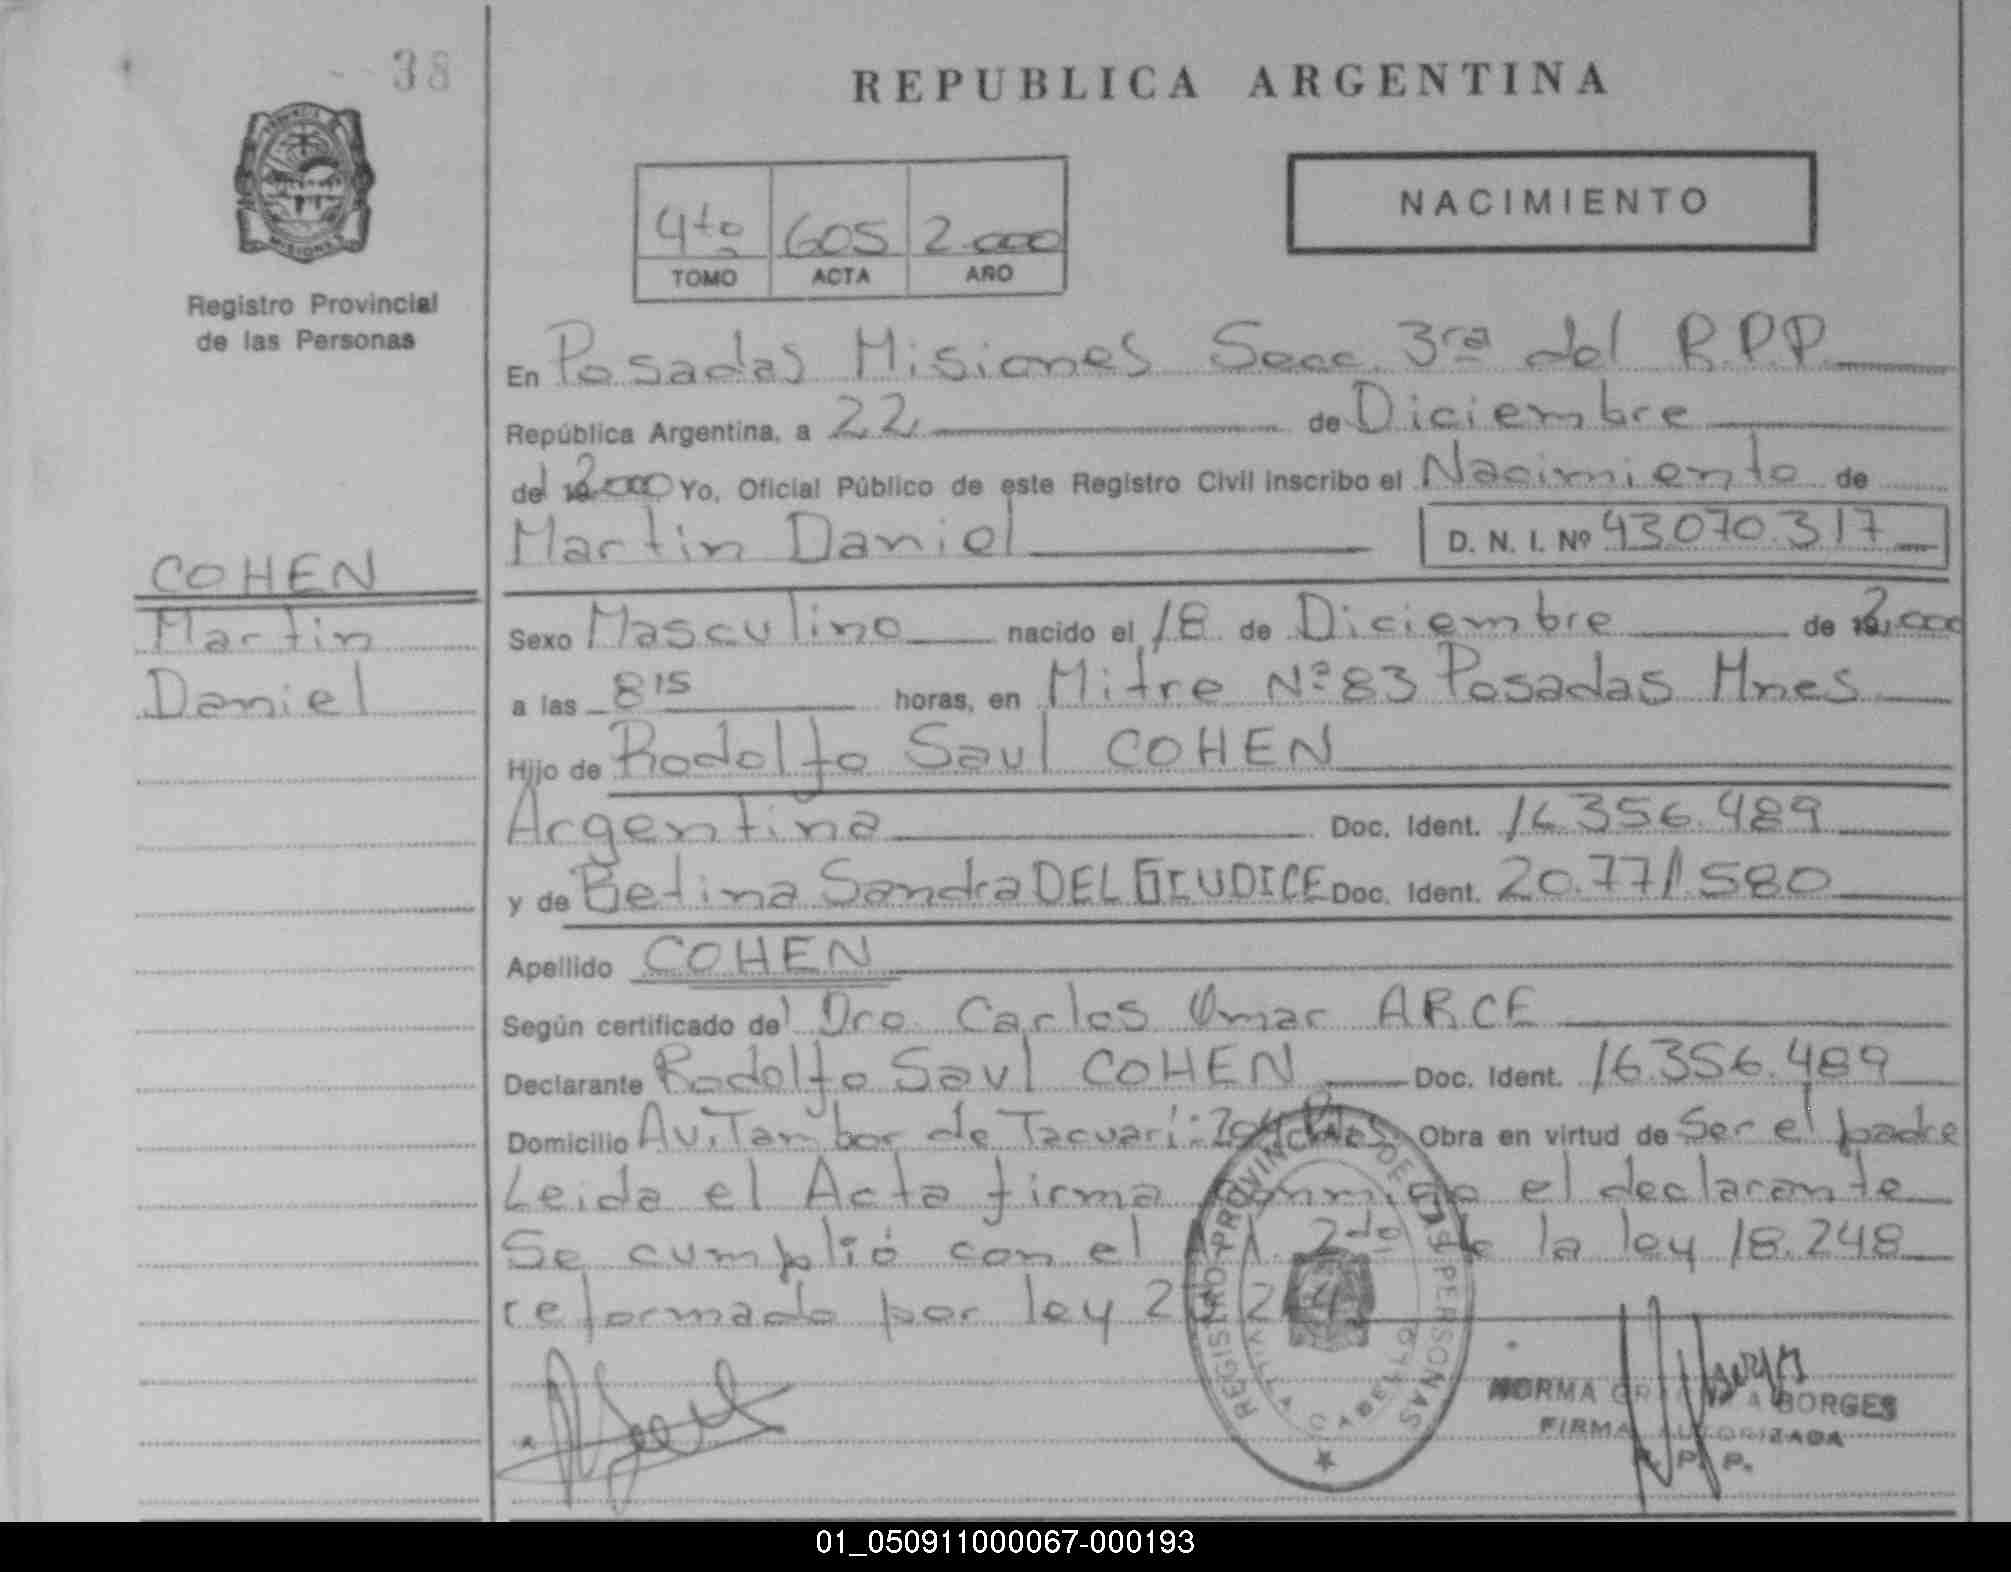 38
REPUBLICA ARGENTINA
NACIMIENTO
4to 605 2.000
TOMO ACTA AÑO
Registro Provincial
de las Personas
En Posadas Misiones Secc. 3ra del R.P.P.
República Argentina, a 22 de Diciembre
del 2.000 Yo, Oficial Público de este Registro Civil inscribo el Nacimiento de
Martin Daniel D. N. I. Nº 43.070.317
COHEN
Martin
Daniel
Sexo Masculino nacido el 18 de Diciembre de 2.000
a las 815 horas, en Mitre Nº 83 Posadas Mnes
Hijo de Rodolfo Saul COHEN
Argentina Doc. Ident. 16.356.489
y de Betina Sandra DEL GIUDICE Doc. Ident. 20.771.580
Apellido COHEN
Según certificado del Dro Carlos Omar ARCE
Declarante Rodolfo Saul COHEN Doc. Ident. 16.356.489
Domicilio Av. Tambor de Tacuari Obra en virtud de Ser el padre
Leida el Acta firma conmigo el declarante
Se cumplió con el 2do de la ley 18.248
reformado por ley
REGISTRO PROVINCIAL DE LAS PERSONAS
VILLA CABELLO
NORMA BORGES
FIRMA AUTORIZADA
R. P. P.
01_050911000067-000193